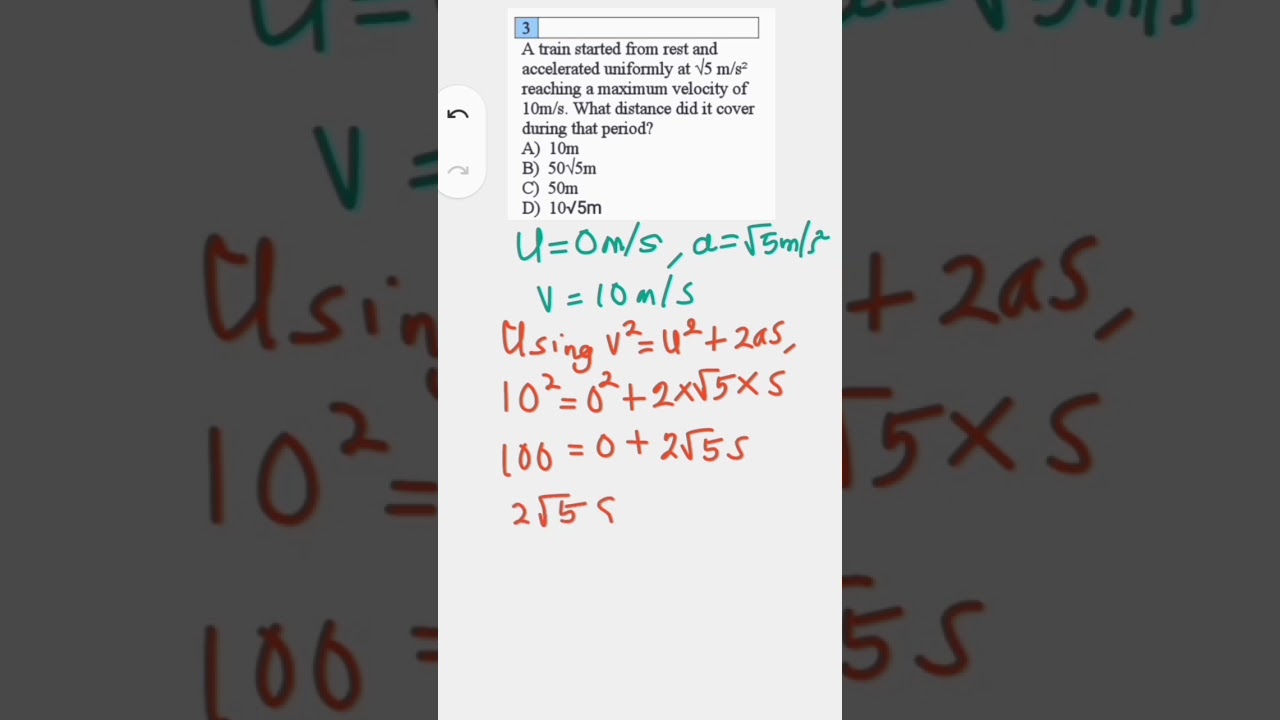 3
A train started from rest and
accelerated uniformly at √5 m/s²
reaching a maximum velocity of
10m/s. What distance did it cover
during that period?
A) 10m
B) 50√5m
C) 50m
D) 10√5m
U = 0m/s, a = √5m/s²
V = 10m/s
Using V² = U² + 2as,
10² = 0² + 2×√5×S
100 = 0 + 2√5 S
2√5 S